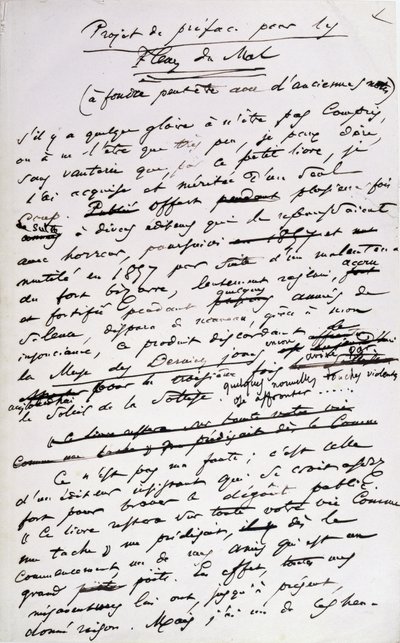 Projet de préface pour les
Fleurs du Mal
(à fondre peut-être avec d'anciennes notes)
S'il y a quelque gloire à n'être pas compris,
ou à ne l'être que très peu, je peux dire,
sans vanterie que, par ce petit livre, je
l'ai acquise et méritée d'un seul
coup. Offert plusieurs fois
de suite à divers éditeurs qui le repoussaient
avec horreur, poursuivi et
mutilé en 1857 par suite d'un malentendu
fort bizarre, lentement rajeuni, accru
et fortifié pendant quelques années de
silence, disparu de nouveau, grâce à mon
insouciance, ce produit discordant de
la Muse des Derniers jours, encore avivé par
quelques nouvelles touches violentes
ose affronter
aujourd'hui pour la troisième fois
le Soleil de la Sottise.
Ce livre restera sur toute votre vie
comme une tache me prédisait dès le comme
Ce n'est pas ma faute ; c'est celle
d'un éditeur insistant qui se croit assez
fort pour braver le dégoût public.
« Ce livre restera sur toute votre vie comme
une tache » me prédisait, dès le
commencement, un de mes amis, qui est un
grand poète. En effet, toutes mes
mésaventures lui ont jusqu'à présent
donné raison. Mais j'ai un de ces heu-